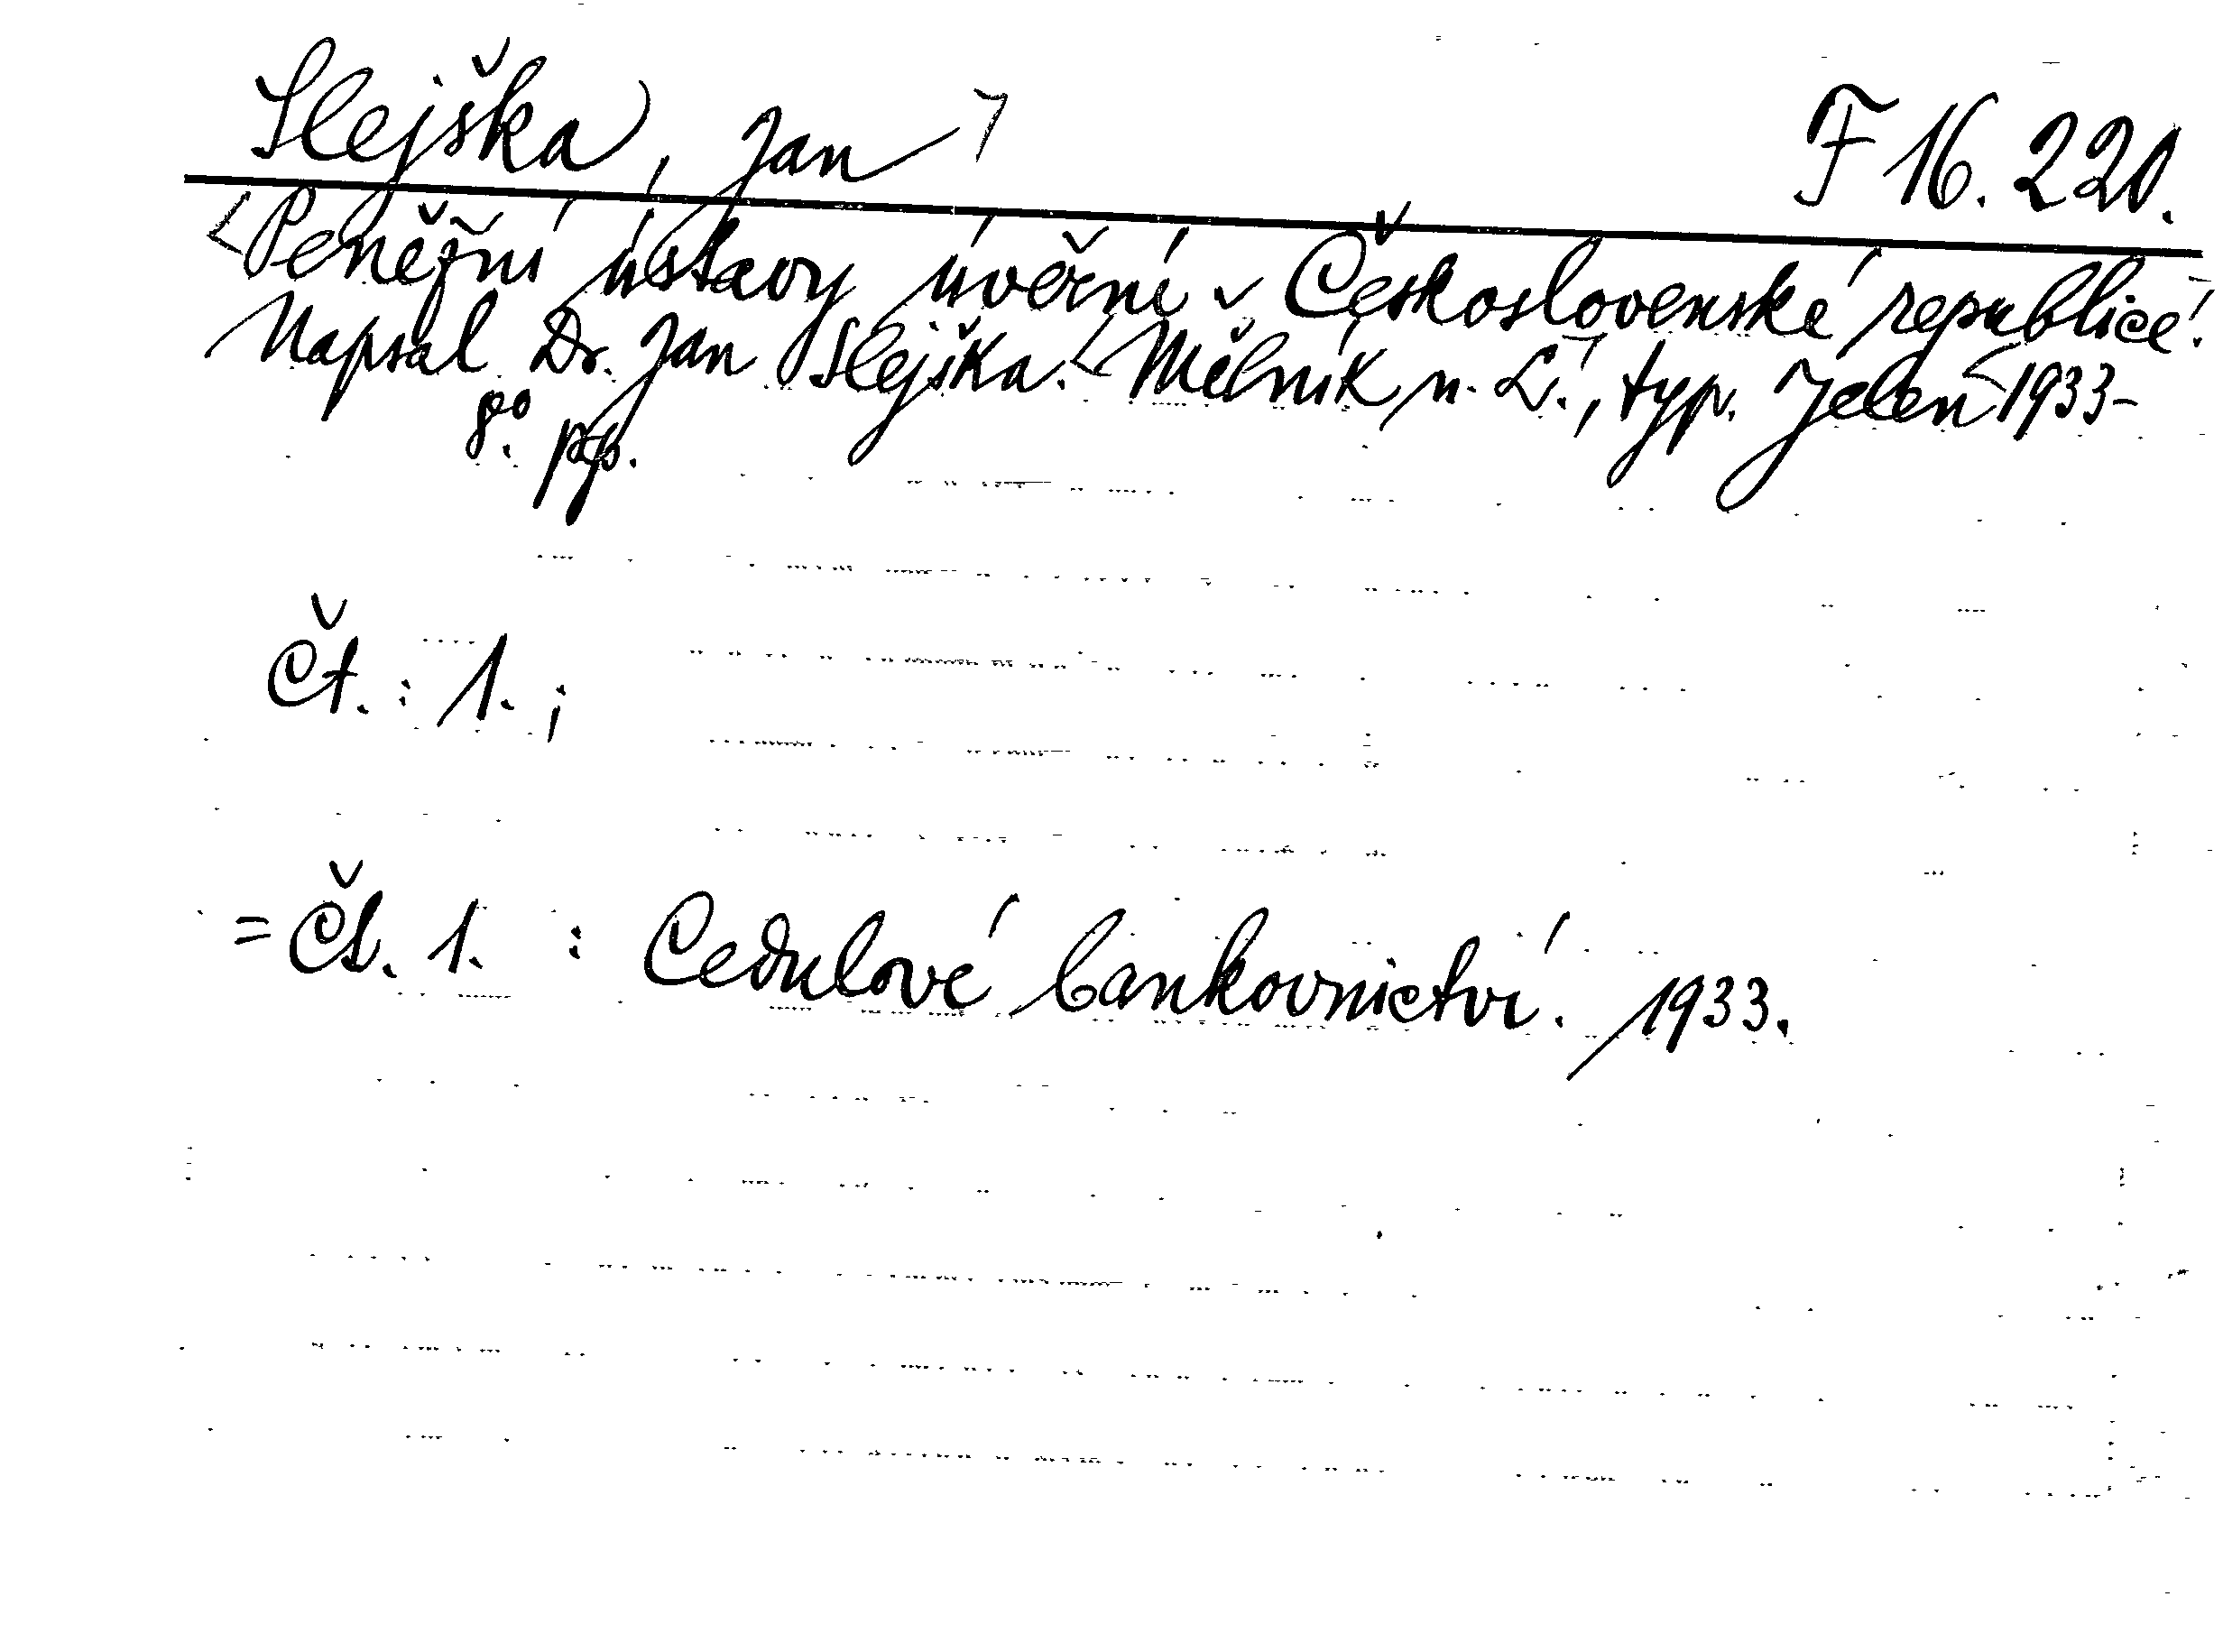 Slejška, Jan
F 16.220.
Peněžní ústavy úvěrní v Československé republice.
Napsal Dr. Jan Slejška. Mělník n. L., typ. Jelen 1933-
8° pp.
Čt.: 1. ;
= Čt. 1. : Cedulové bankovnictví. 1933.